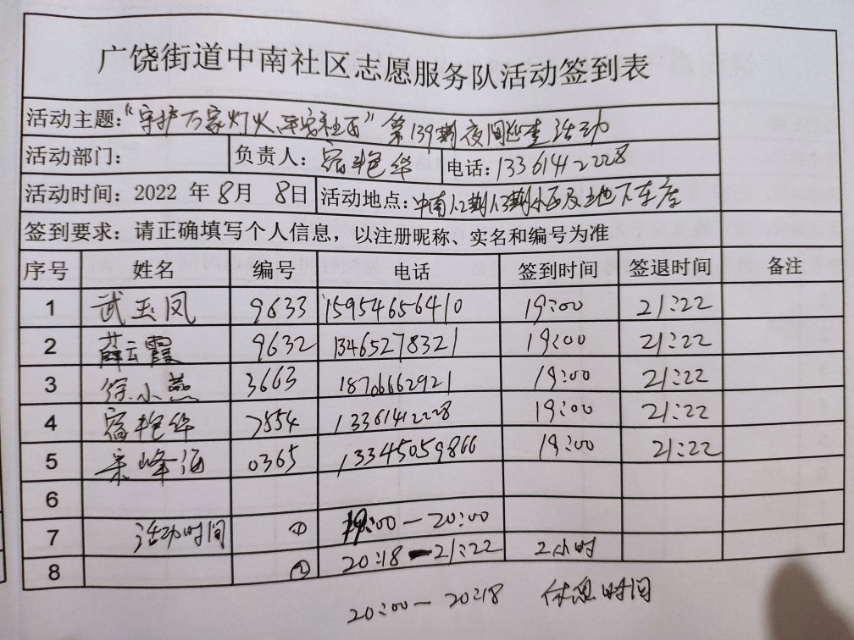 广饶街道中南社区志愿服务队活动签到表
活动主题:“守护万家灯火,平安社区”第139期夜间巡查活动
活动部门: 负责人:宿艳华 电话:13361412228
活动时间:2022 年 8月 8日 活动地点:中南1.2期1.3期小区及地下车库
签到要求:请正确填写个人信息,以注册昵称、实名和编号为准
序号 姓名 编号 电话 签到时间 签退时间 备注
1 武玉凤 9633 15954656410 19:00 21:22
2 薛云霞 9632 13465278321 19:00 21:22
3 徐小燕 3663 18706662921 19:00 21:22
4 宿艳华 7854 13361412228 19:00 21:22
5 宋峰海 0365 13345059866 19:00 21:22
6
7 活动时间 ① 19:00—20:00
8 ② 20:18—21:22 2小时
20:00—20:18 休息时间